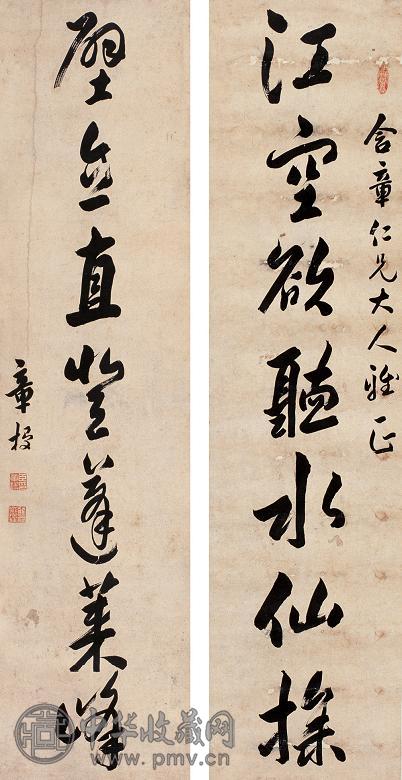 含章仁兄大人雅正
江空欲聽水仙操
壁立直登蓬萊峰
章授
中华收藏网
www.pmv.cn